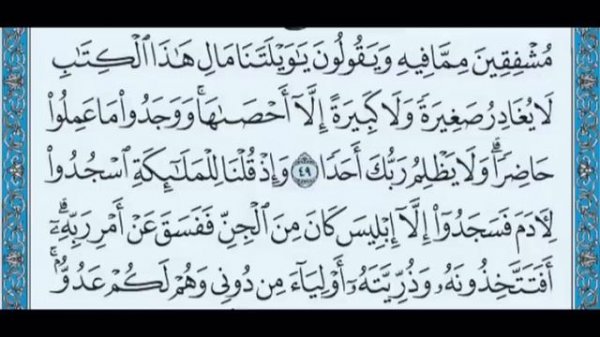 مُشْفِقِينَ مِمَّا فِيهِ وَيَقُولُونَ يَٰوَيْلَتَنَا مَالِ هَٰذَا ٱلْكِتَٰبِ
لَا يُغَادِرُ صَغِيرَةً وَلَا كَبِيرَةً إِلَّآ أَحْصَىٰهَا ۚ وَوَجَدُوا۟ مَا عَمِلُوا۟
حَاضِرًا ۗ وَلَا يَظْلِمُ رَبُّكَ أَحَدًا ٤٩ وَإِذْ قُلْنَا لِلْمَلَٰٓئِكَةِ ٱسْجُدُوا۟
لِـَٔادَمَ فَسَجَدُوٓا۟ إِلَّآ إِبْلِيسَ كَانَ مِنَ ٱلْجِنِّ فَفَسَقَ عَنْ أَمْرِ رَبِّهِۦٓ ۗ
أَفَتَتَّخِذُونَهُۥ وَذُرِّيَّتَهُۥٓ أَوْلِيَآءَ مِن دُونِى وَهُمْ لَكُمْ عَدُوٌّۢ ۚ